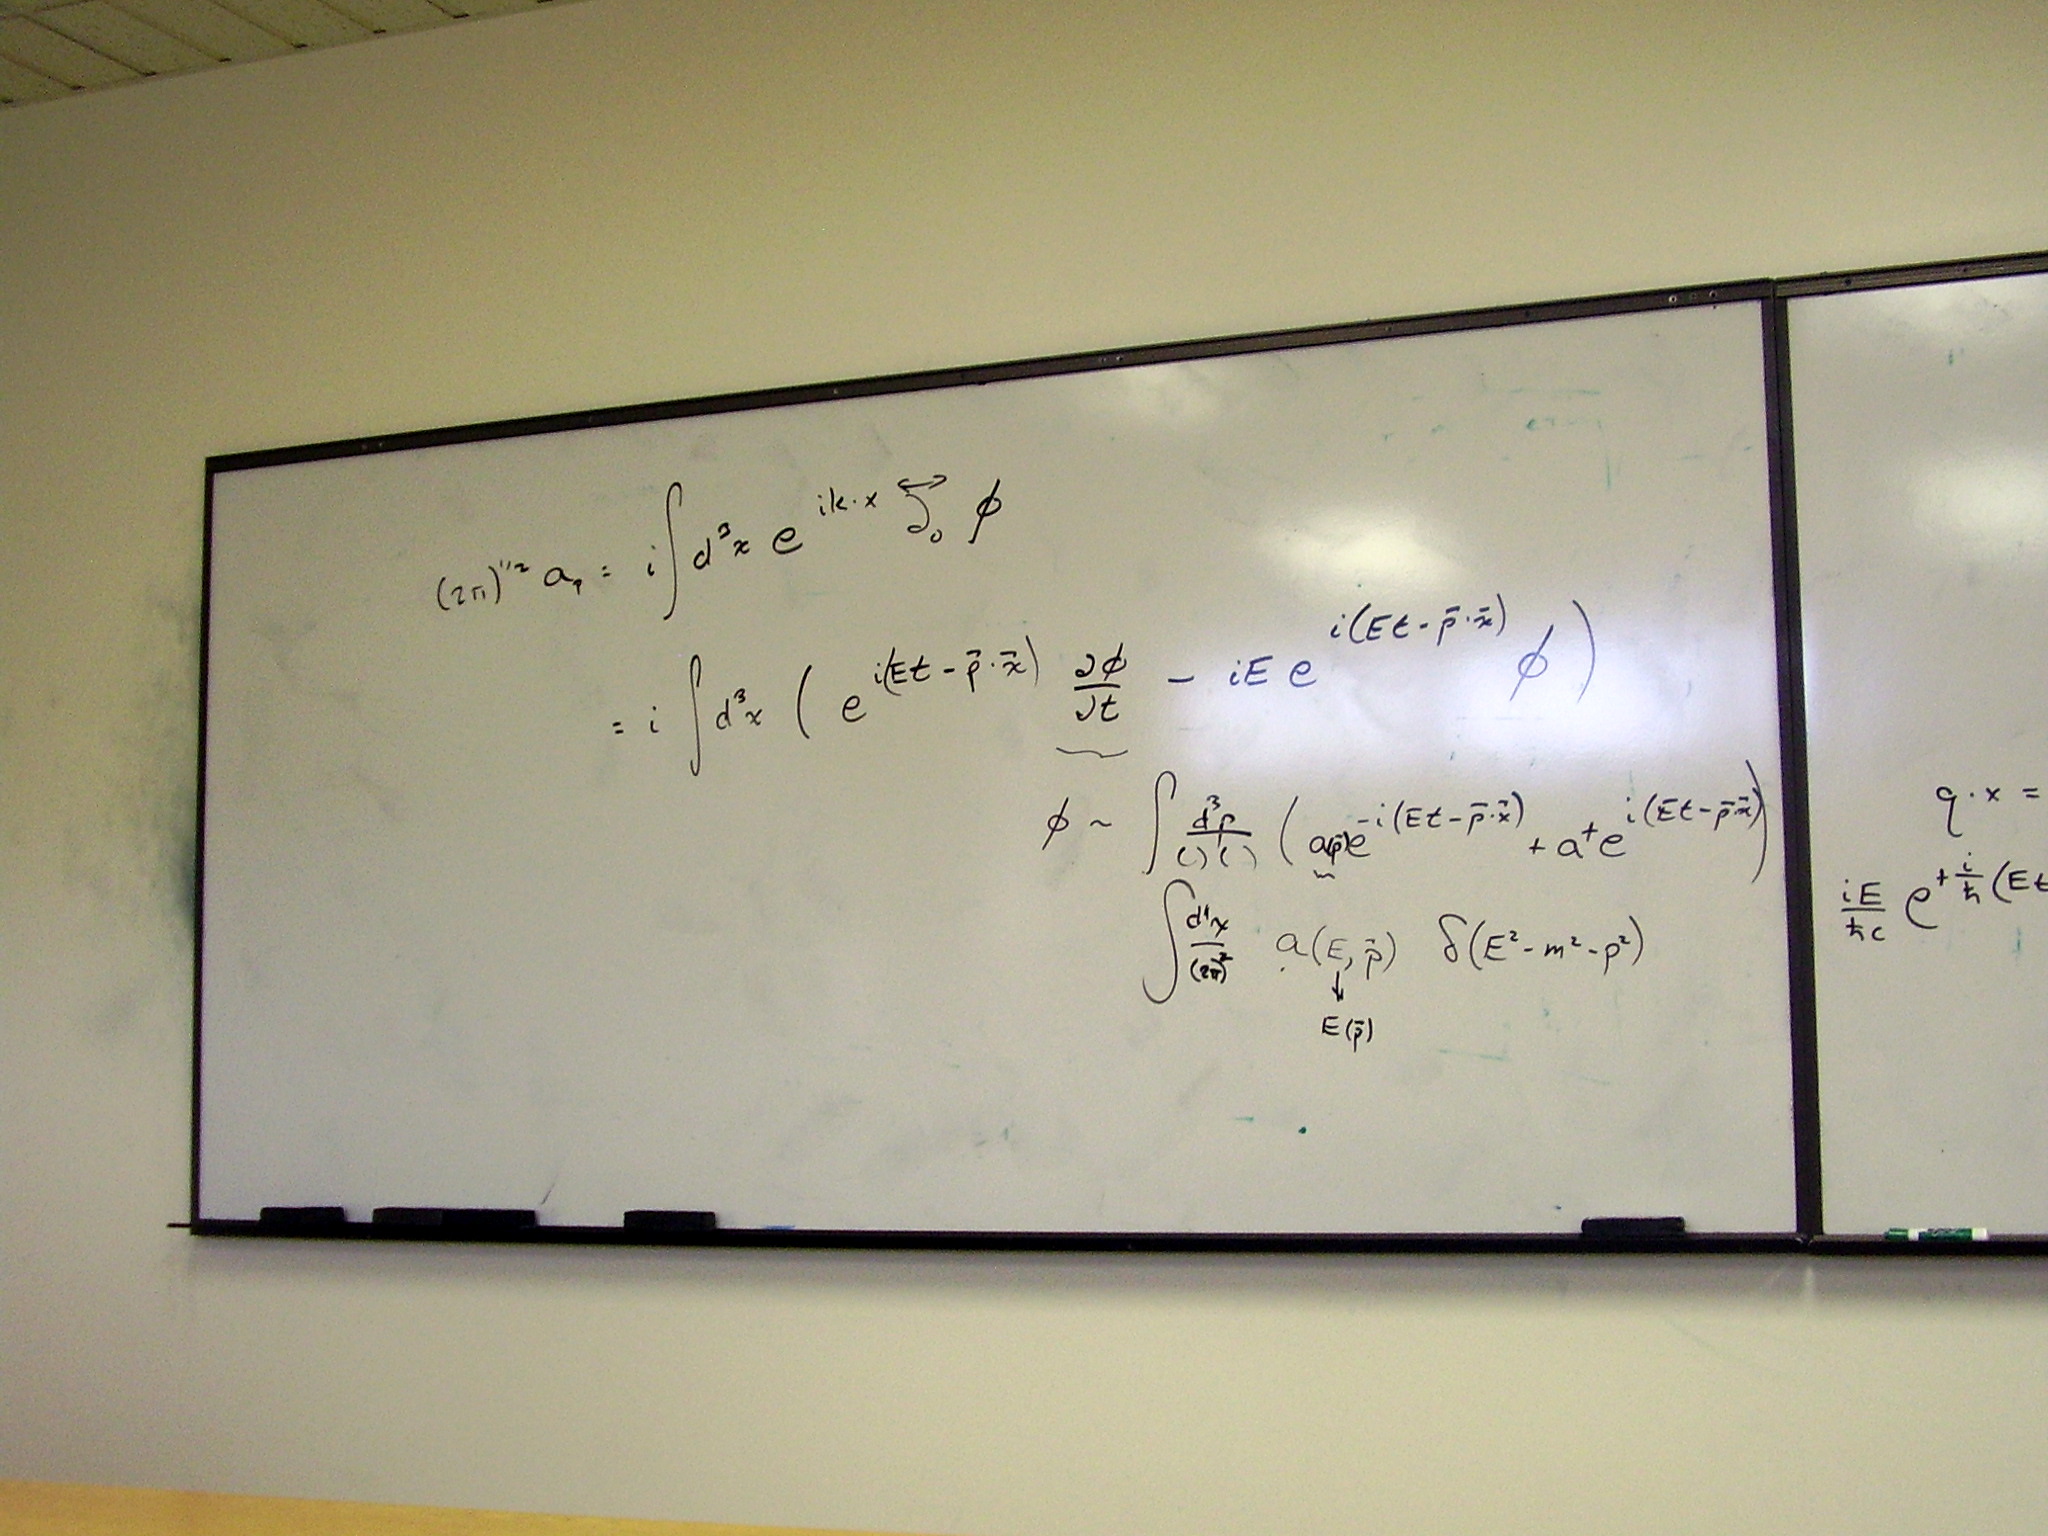 (2π)^{1/2} a_p = i ∫ d³x e^{ik·x} ∂₀^↔ ϕ
= i ∫ d³x ( e^{i(Et - p̄·x̄)} ∂ϕ/∂t - iE e^{i(Et - p̄·x̄)} ϕ )
ϕ ~ ∫ d³p/( )( ) ( a(p̄)e^{-i(Et - p̄·x̄)} + a†e^{i(Et - p̄·x̄)} )
∫ d⁴x/(2π)² a(E, p̄) δ(E² - m² - p²)
↓
E(p̄)
q·x =
iE/ħc e^{+i/ħ (Et